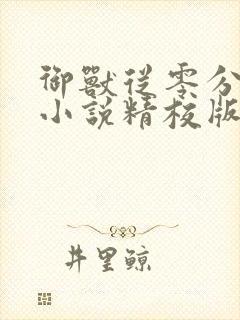 御獸從零分
小說精校版
井里鯨